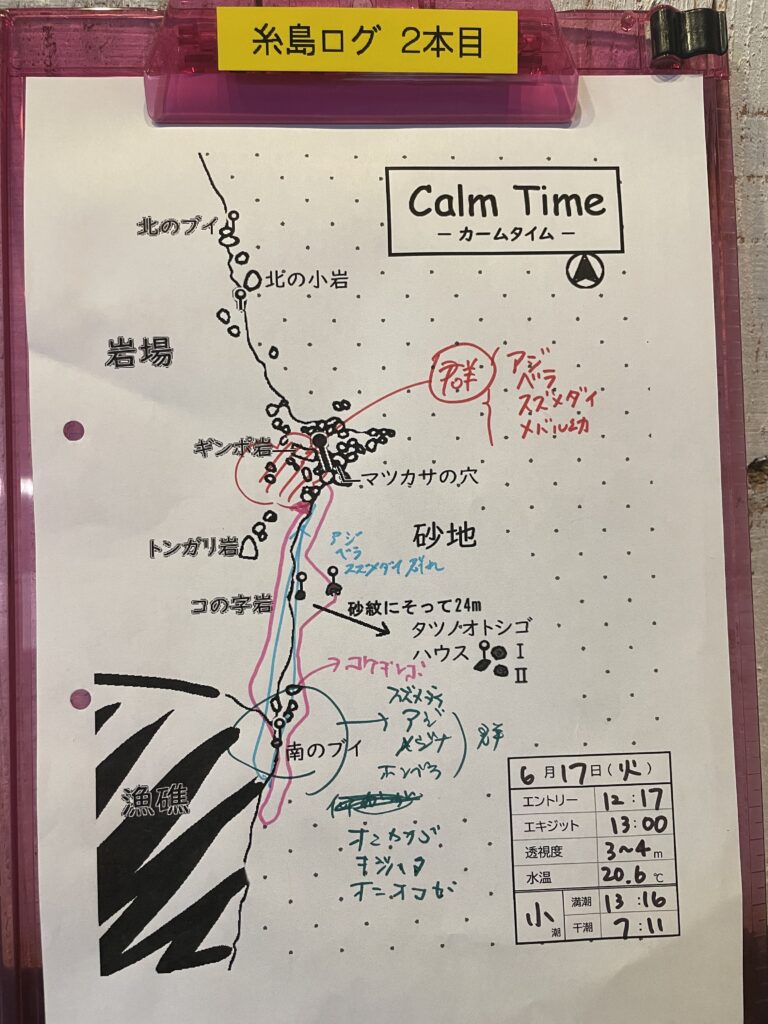 糸島ログ 2本目
Calm Time
− カームタイム −
北のブイ
北の小岩
岩場
群
アジ
ベラ
スズメダイ
メバル幼
ギンポ岩
マツカサの穴
トンガリ岩
砂地
アジ
ベラ
スズメダイ 群れ
コの字岩
砂紋にそって24m
タツノオトシゴ
ハウス
I
II
スズメダイ
アジ
メジナ
ホンベラ
群
南のブイ
漁礁
オニカサゴ
キジハタ
オニオコゼ
6月17日(火)
エントリー 12:17
エキジット 13:00
透視度 3〜4m
水温 20.6℃
小潮
満潮 13:16
干潮 7:11